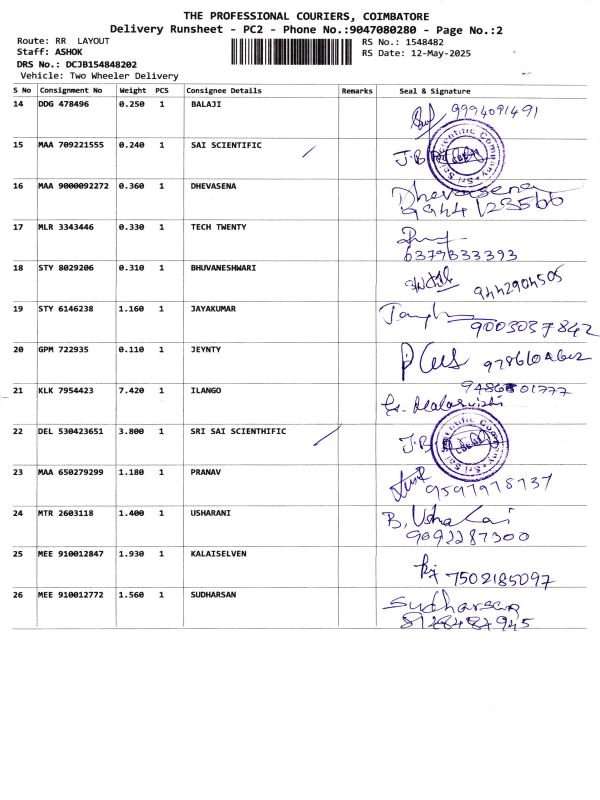 THE PROFESSIONAL COURIERS, COIMBATORE
Delivery Runsheet - PC2 - Phone No.:9047080280 - Page No.:2
Route: RR LAYOUT RS No.: 1548482
Staff: ASHOK RS Date: 12-May-2025
DRS No.: DCJB154848202
Vehicle: Two Wheeler Delivery
S No Consignment No Weight PCS Consignee Details Remarks Seal & Signature
14 DDG 478496 0.250 1 BALAJI 9994091491
15 MAA 709221555 0.240 1 SAI SCIENTIFIC J.B
Sri Sai Scientific Company
16 MAA 9000092272 0.360 1 DHEVASENA Dhevasena
9944123566
17 MLR 3343446 0.330 1 TECH TWENTY
6379833393
18 STY 8029206 0.310 1 BHUVANESHWARI 9442904505
19 STY 6146238 1.160 1 JAYAKUMAR
9003037842
20 GPM 722935 0.110 1 JEYNTY
21 KLK 7954423 7.420 1 ILANGO
22 DEL 530423651 3.800 1 SRI SAI SCIENTHIFIC J.B
Sri Sai Scientific Company
23 MAA 650279299 1.180 1 PRANAV
9597978737
24 MTR 2603118 1.400 1 USHARANI B.
9092287300
25 MEE 910012847 1.930 1 KALAISELVEN
7502185097
26 MEE 910012772 1.560 1 SUDHARSAN Sudharsan